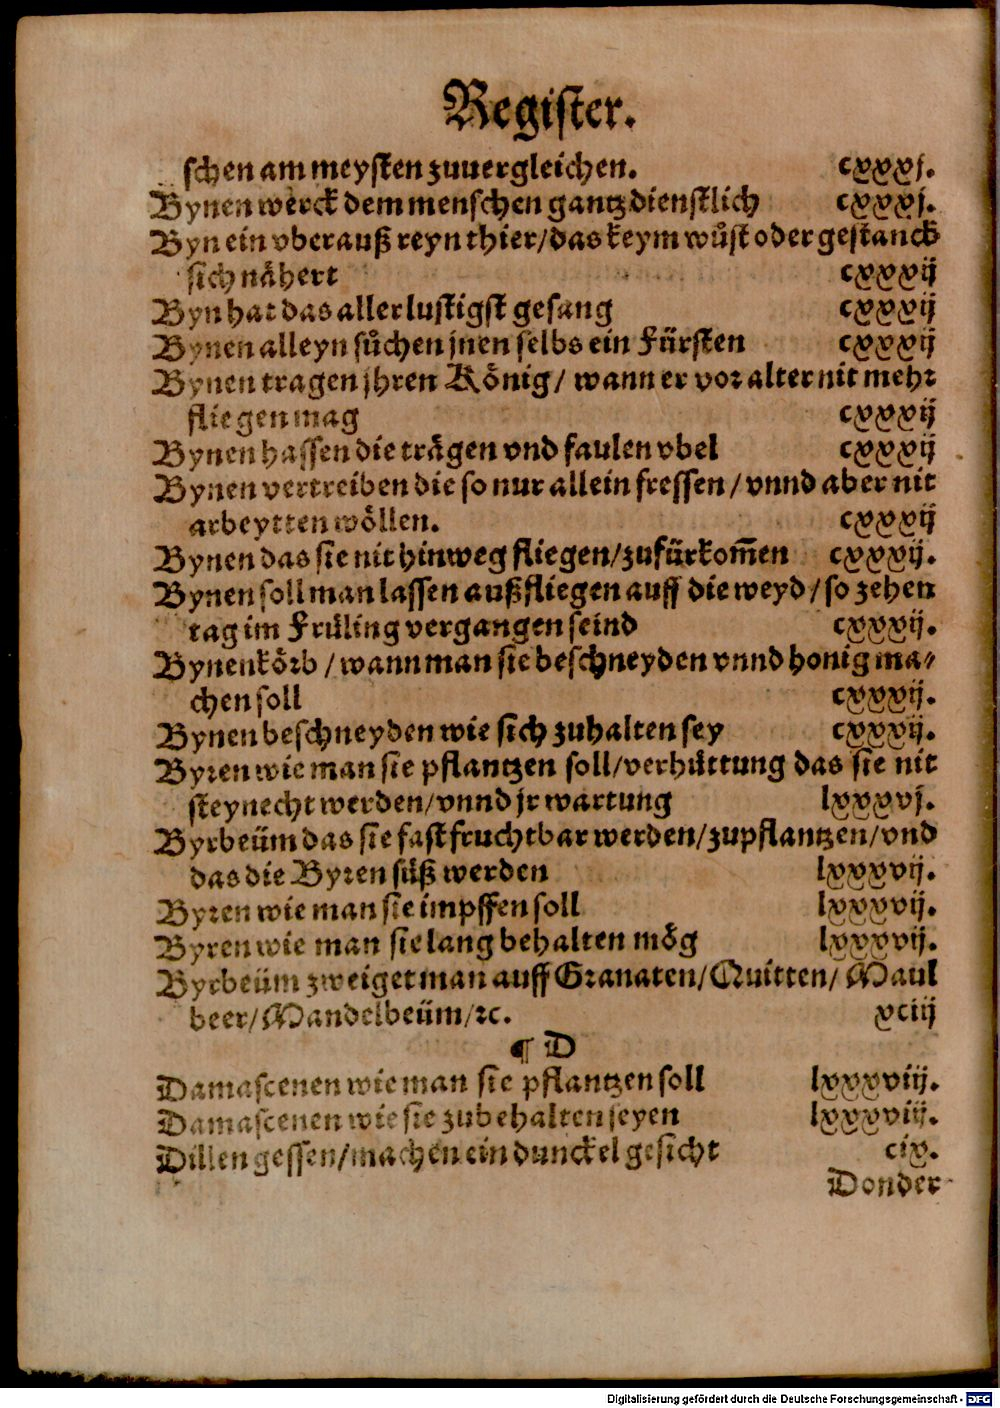 Register.
schen am meysten zuuergleichen. cxxxj.
Bynen werck dem menschen gantz dienstlich cxxxj.
Byn ein vberauß reyn thier/das keym wůst oder gestanck
sich nähert cxxxij
Byn hat das allerlustigst gesang cxxxij
Bynen alleyn sůchen jnen selbs ein Fürsten cxxxij
Bynen tragen jhren König/ wann er vor alter nit mehr
fliegen mag cxxxij
Bynen hassen die trägen vnd faulen vbel cxxxij
Bynen vertreiben die so nur allein fressen/vnnd aber nit
arbeytten wöllen. cxxxij
Bynen das sie nit hinweg fliegen/zufürkom̃en cxxxij.
Bynen soll man lassen außfliegen auff die weyd/so zehen
tag im Früling vergangen seind cxxxij.
Bynenkörb/wann man sie beschneyden vnnd honig ma⸗
chen soll cxxxij.
Bynen beschneyden wie sich zuhalten sey cxxxij.
Byren wie man sie pflantzen soll/verhüttung das sie nit
steynecht werden/vnnd jr wartung lxxxvj.
Byrbeüm das sie fast fruchtbar werden/zupflantzen/vnd
das die Byren süß werden lxxxvij.
Byren wie man sie impffen soll lxxxvij.
Byren wie man sie lang behalten mög lxxxvij.
Byrbeüm zweiget man auff Granaten/Quitten/Maul
beer/Mandelbeüm/ꝛc. xciij
¶ D
Damascenen wie man sie pflantzen soll lxxxviij.
Damascenen wie sie zubehalten seyen lxxxviij.
Dillen gessen/machen ein dunckel gesicht cix.
Donder
Digitalisierung gefördert durch die Deutsche Forschungsgemeinschaft - DFG